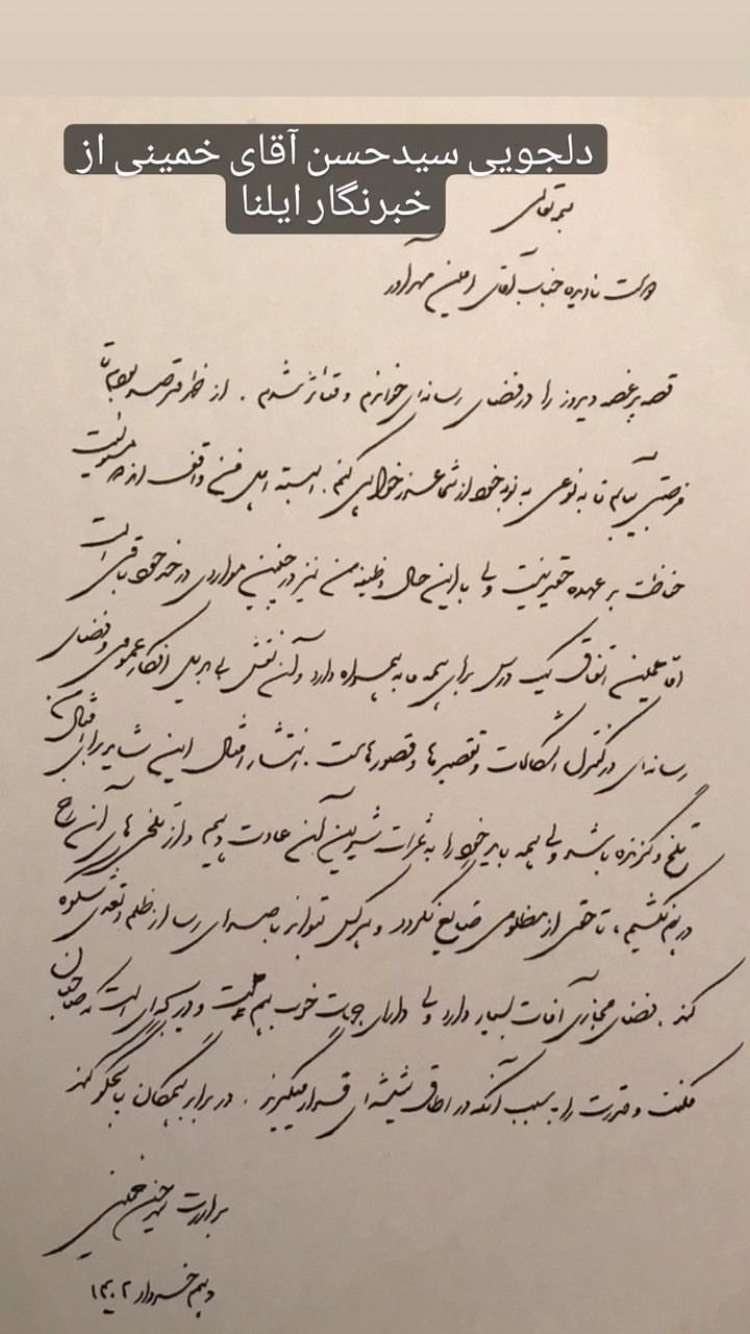 دلجویی سیدحسن آقای خمینی از
خبرنگار ایلنا
بسمه تعالی
دوست نادیده جناب آقای امین مهرآور
قصه پر غصه دیروز را در فضای رسانه‌ای خواندم و متاثر شدم. از خدا فرصت
فرصتی بیابم تا به نوعی به نوبه خود از شما عذرخواهی کنم. البته اهل فن واقف‌اند مسولیت
حفاظت بر عهده حقیر نیست ولی با این حال وظیفه من نیز در چنین مواردی در حد خود باقی است
اما همین اتفاق یک درس برای همه ما به همراه دارد و آن نقش بی بدیل افکار عمومی و فضای
رسانه‌ای در کنترل اشکالات و تقصیرها و قصورهاست. انتشار امثال این شاید برای امثال من
تلخ و گزنده باشد ولی همه باید خود را به ثمرات شیرین آن عادت دهیم و از تلخی های آن رخ
در هم نکشیم، تا حقی از مظلومی ضایع نگردد و هر کس بتواند با صدای رسا از ظلم و تعدی شکوه
کند. فضای مجازی آفات بسیار دارد ولی دارای جهات خوب هم هست و دریچه‌ای است که صاحبان
مکنت و قدرت را به سبب آنکه در اطاق شیشه‌ای قرار میگیرند. در برابر همگان پاسخگو کند
برادرت سید حسن خمینی
دهم خرداد ۱۴۰۲